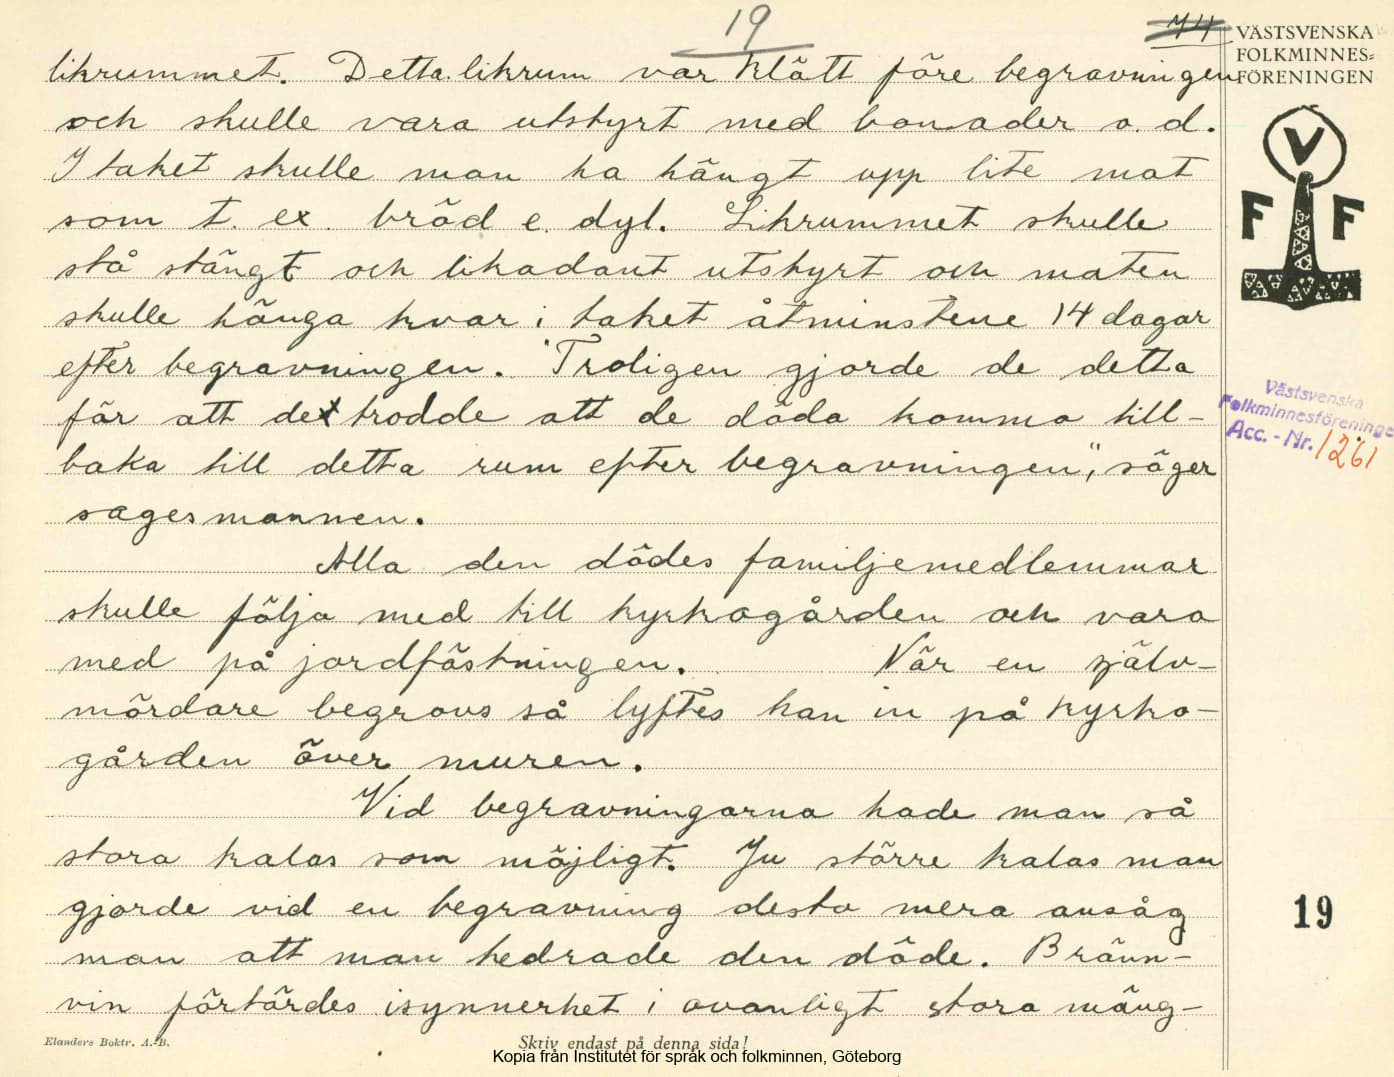 19
74
VÄSTSVENSKA
FOLKMINNES=
FÖRENINGEN
likrummet. Detta likrum var klätt före begravningen
och skulle vara utstyrt med bonader o. d.
I taket skulle man ha hängt upp lite mat
som t. ex. bröd e. dyl. Likrummet skulle
stå stängt och likadant utstyrt och maten
skulle hänga kvar i taket åtminstene 14 dagar
efter begravningen. "Troligen gjorde de detta
för att det trodde att de döda komma till-
baka till detta rum efter begravningen", säger
sagesmannen.
Alla den dödes familjemedlemmar
skulle följa med till kyrkogården och vara
med på jordfästningen. När en själv-
mördare begravs så lyftes han in på kyrko-
gården över muren.
Vid begravningarna hade man så
stora kalas som möjligt. Ju större kalas man
gjorde vid en begravning desto mera ansåg
man att man hedrade den döde. Bränn-
vin förtärdes isynnerhet i ovanligt stora mäng-
V
F F
Västsvenska
Folkminnesföreninge
Acc. - Nr. 1261
19
Elanders Boktr. A.-B.
Skriv endast på denna sida!
Kopia från Institutet för språk och folkminnen, Göteborg